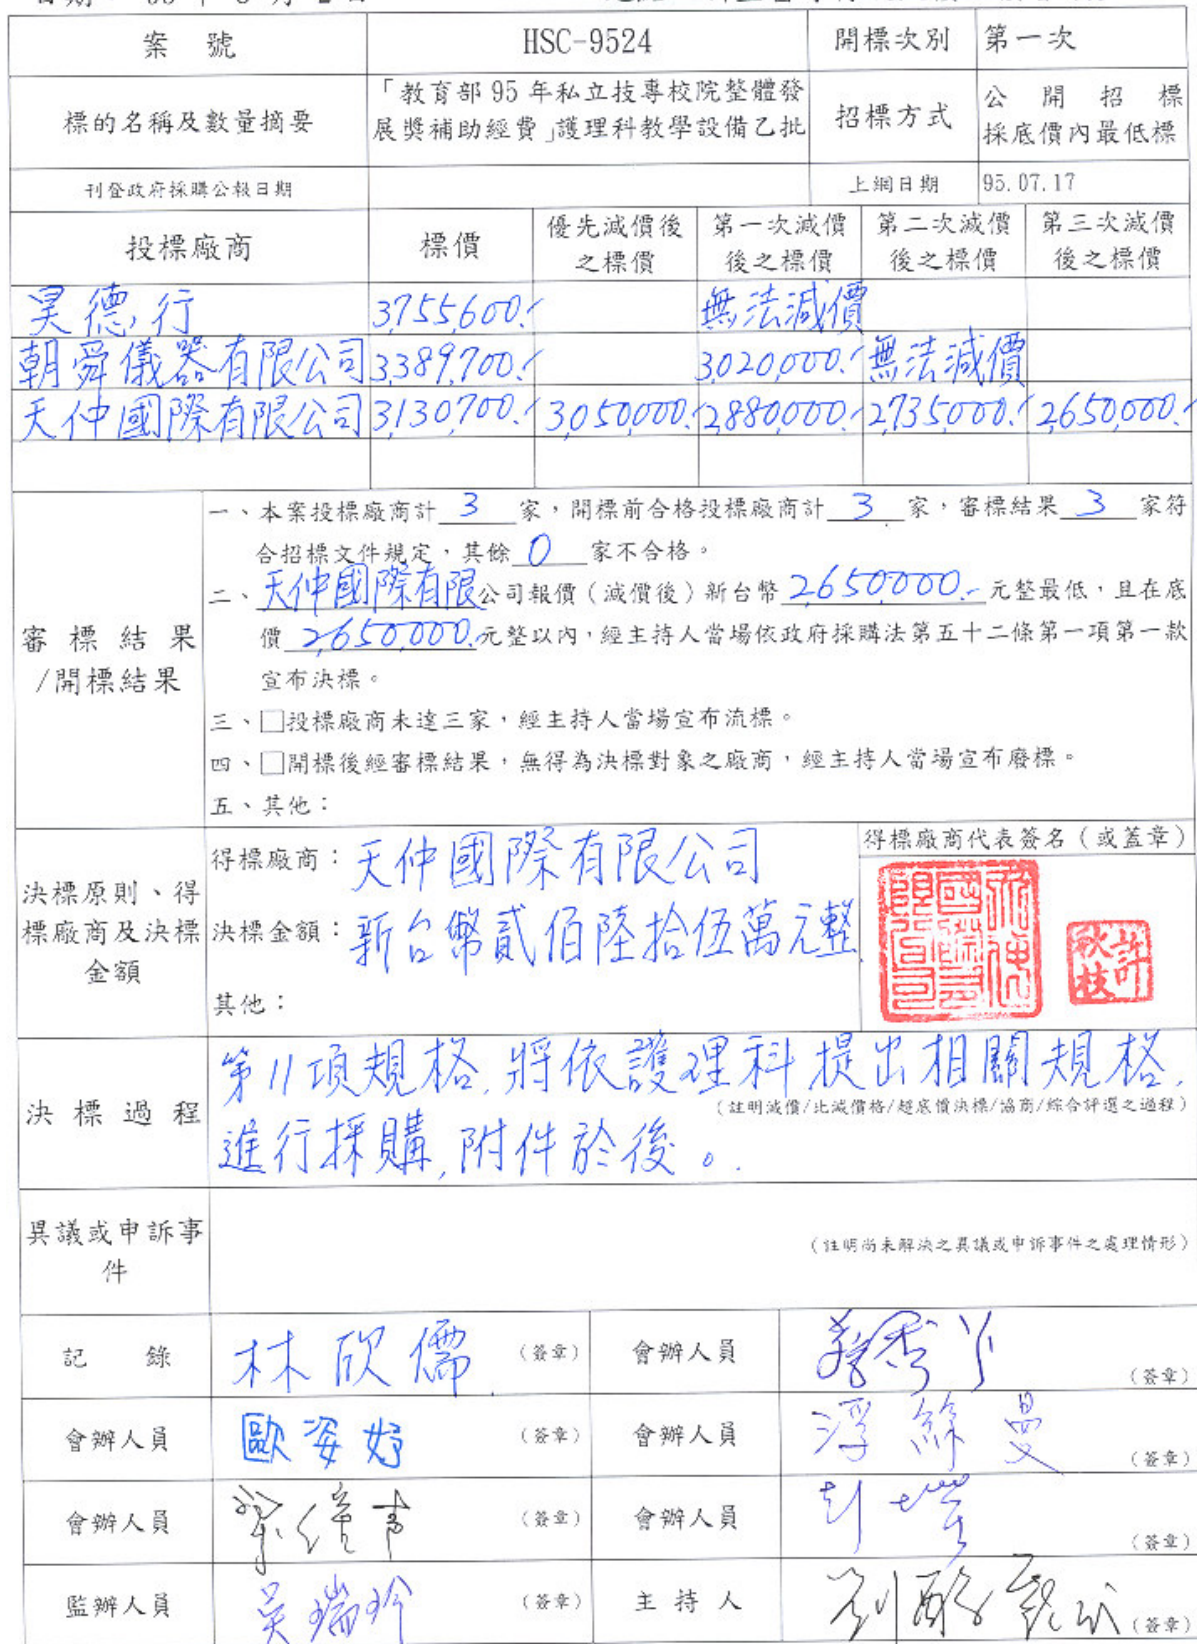 案 號 HSC-9524 開標次別 第一次
標的名稱及數量摘要 「教育部 95 年私立技專校院整體發展獎補助經費」護理科教學設備乙批 招標方式 公開招標 採底價內最低標
刊登政府採購公報日期 上網日期 95.07.17
投標廠商 標價 優先減價後之標價 第一次減價後之標價 第二次減價後之標價 第三次減價後之標價
昊德行 3,755,600.- 無法減價
朝舜儀器有限公司 3,389,700.- 3,020,000.- 無法減價
天仲國際有限公司 3,130,700.- 3,050,000.- 2,880,000.- 2,735,000.- 2,650,000.-
審標結果/開標結果
一、本案投標廠商計 3 家，開標前合格投標廠商計 3 家，審標結果 3 家符
合招標文件規定，其餘 0 家不合格。
二、天仲國際有限公司報價（減價後）新台幣 2,650,000.- 元整最低，且在底
價 2,650,000. 元整以內，經主持人當場依政府採購法第五十二條第一項第一款
宣布決標。
三、□投標廠商未達三家，經主持人當場宣布流標。
四、□開標後經審標結果，無得為決標對象之廠商，經主持人當場宣布廢標。
五、其他：
決標原則、得標廠商及決標金額
得標廠商：天仲國際有限公司
決標金額：新台幣貳佰陸拾伍萬元整
其他：
得標廠商代表簽名（或蓋章）
許秋枝
決標過程
第11項規格，將依護理科提出相關規格，
（註明減價/比減價格/超底價決標/協商/綜合評選之過程）
進行採購，附件於後。
異議或申訴事件
（註明尚未解決之異議或申訴事件之處理情形）
記 錄 林欣儒 （簽章） 會辦人員 （簽章）
會辦人員 歐姿妤 （簽章） 會辦人員 （簽章）
會辦人員 （簽章） 會辦人員 （簽章）
監辦人員 吳瑞玲 （簽章） 主持人 （簽章）